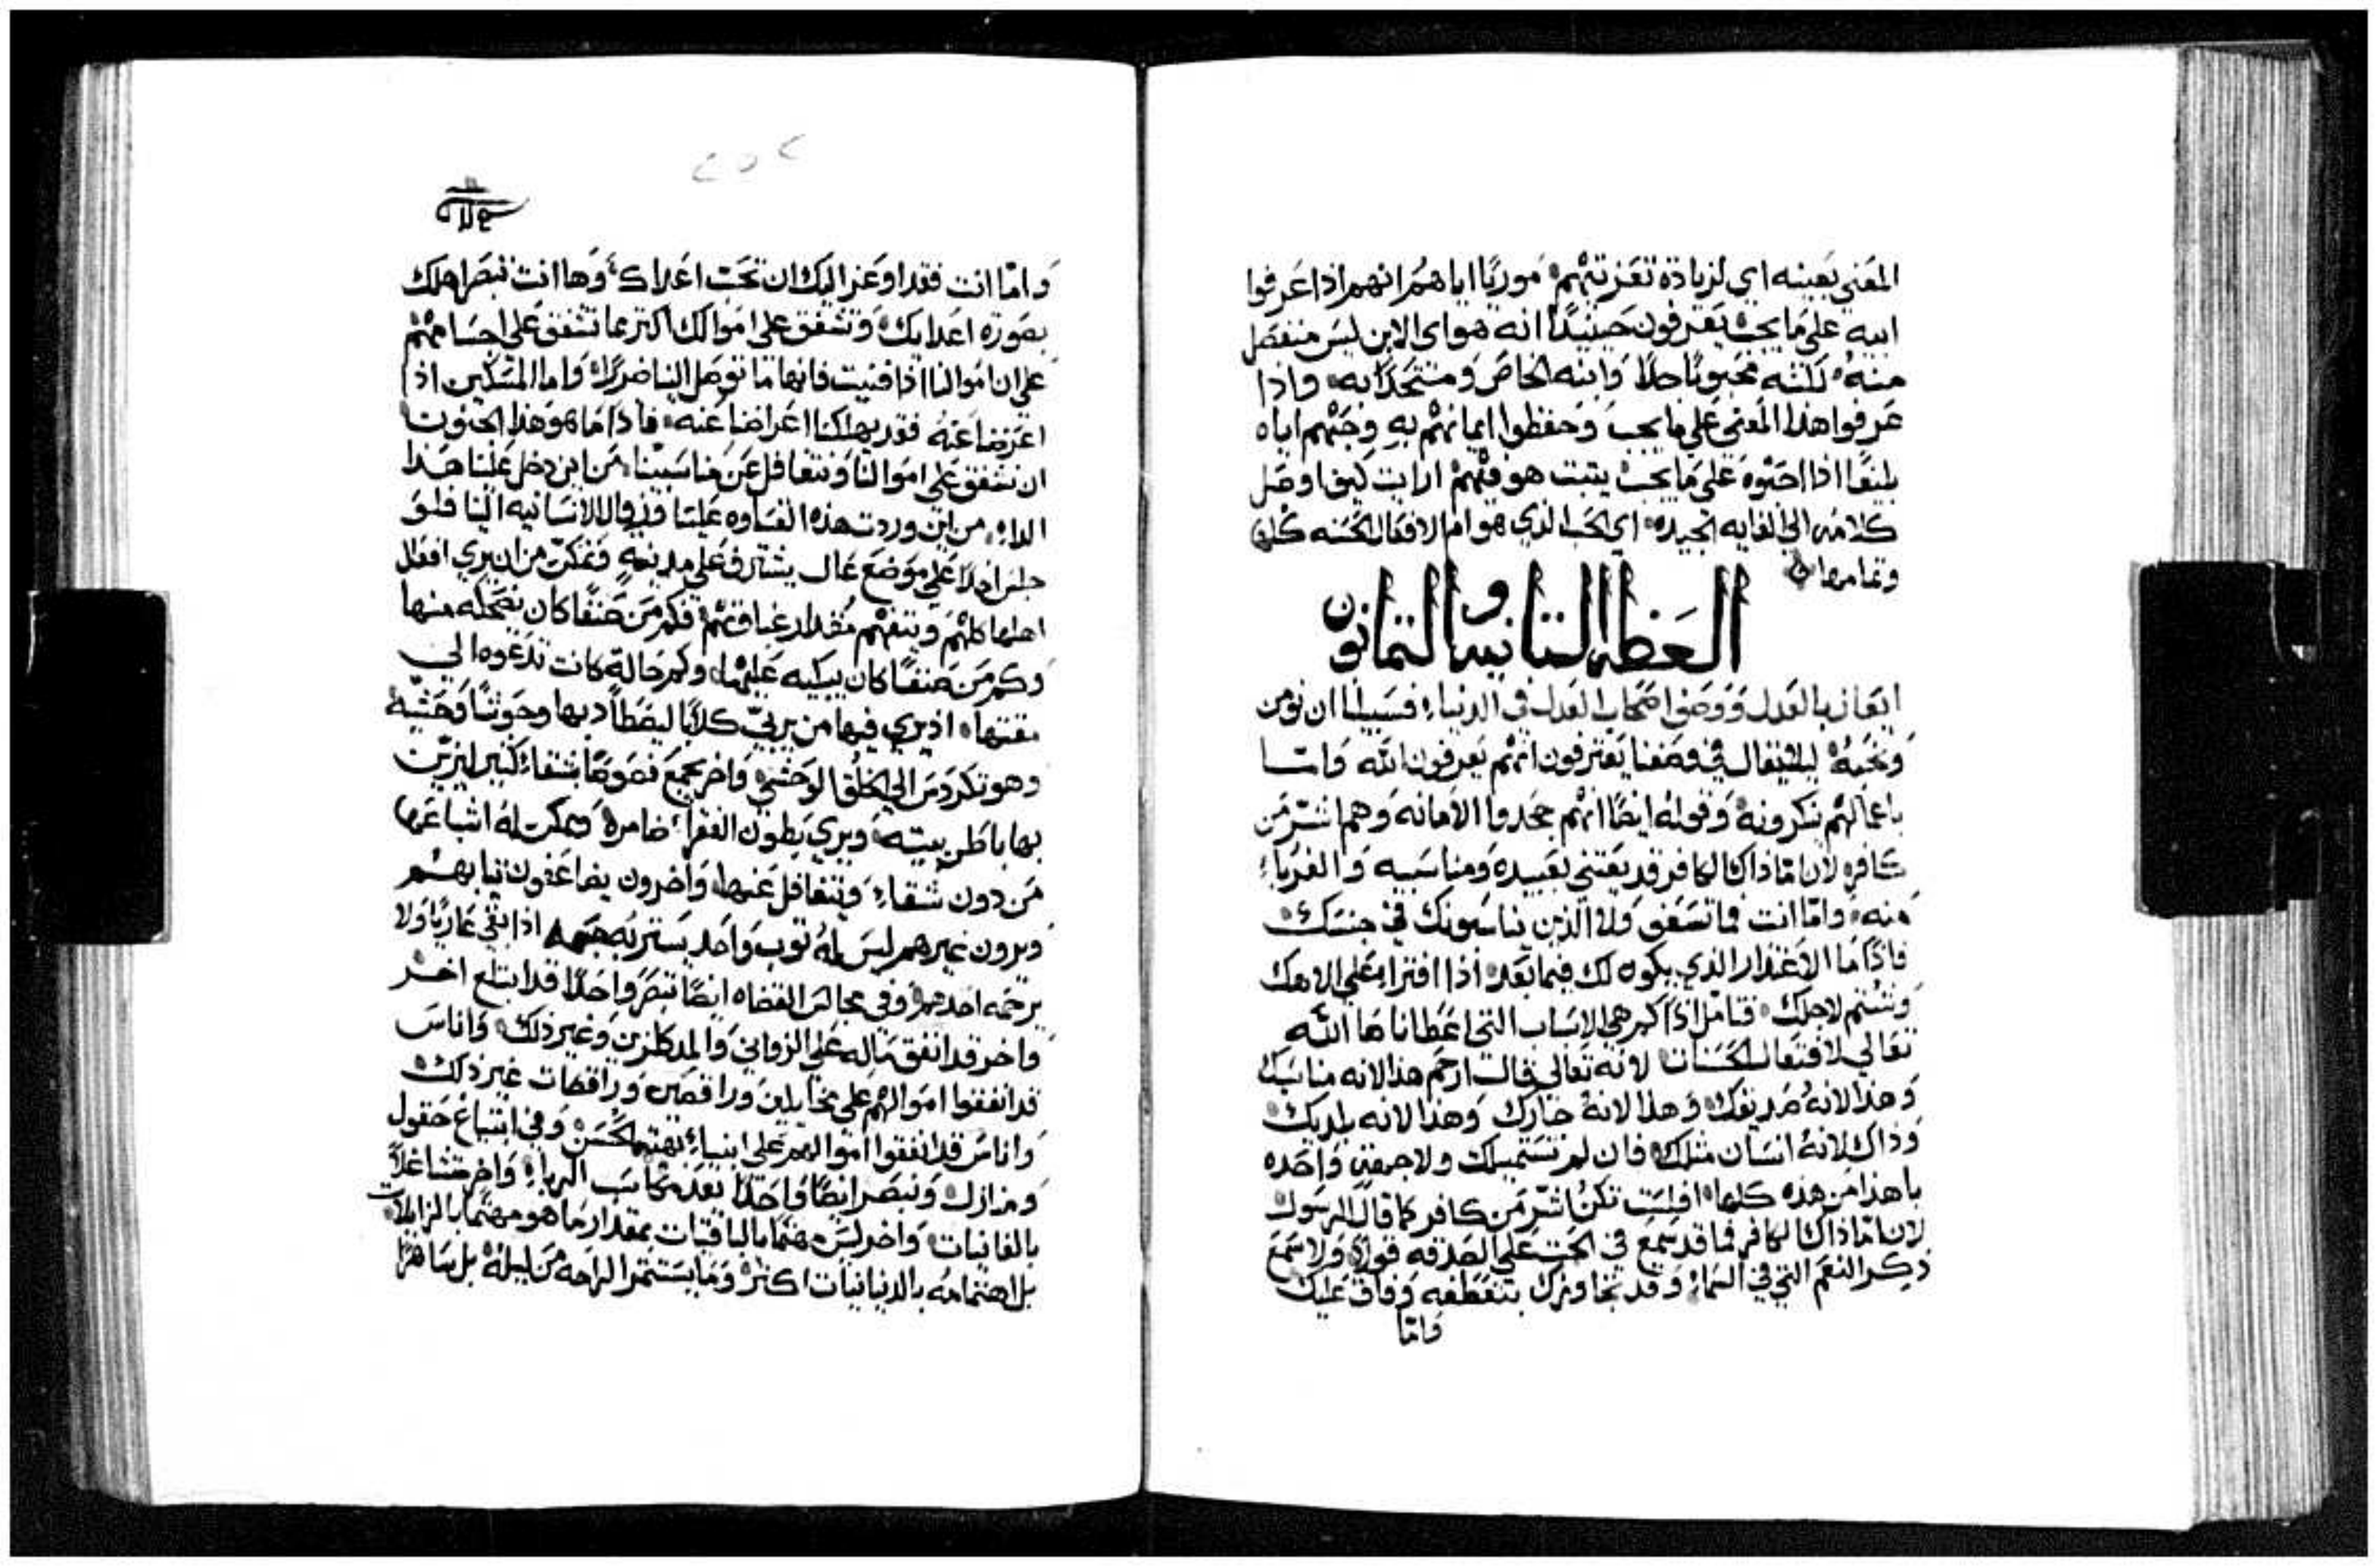 المعني بعينه اي لزيادة تعزيتهم موريًا اياهم انهم اذا عرفوا
ابيه على ما يجب يعرفون حينيدًا انه هو اي الابن ليس منفصل
منه لكنه محبوبًا جدًا وابنه الخاص ومتحدًا به واذا
عرفوا هذا المعني علي ما يجب وحفظوا ايمانهم به وحبهم اياه
بليغًا اذا احبوه علي ما يجب يثبت هو فيهم ارايت كيف اوصل
كلامه الي الغايه الجيده اي الحب الذي هو ام الافعال الحسنه كلها
وتمامها
العظه الثانيه والثمانون
ايعاز بالعدل ووصف اصحاب العدل في الدنيا فسبيلنا ان نومن
ونحبه ليلا يقال في وصفنا يعترفون انهم يعرفون الله واما
باعمالهم ينكرونه وقوله ايضًا انهم جحدوا الامانه وهم اشر من
كافر لان اما ذاك الكافر قد يعتني بعبيده ومناسبيه والغرباء
منه واما انت فما تشفق ولا الذين يناسبونك في جنسك
فاذًا ما الاعتذار الذي يكون لك فيما بعد اذا افترا علي الاهك
وشتم لاجلك فتامل اذًا كم هي الاسباب التي اعطانا ها الله
تعالي لافتعال الحسنات لانه تعالي قال ارحم هذا لانه مناسبك
وهذا لانه صديقك وهذا لانه جارك وهذا لانه بلديك
وذاك لانه انسان مثلك فان لم تستميلك ولا جهة واحده
يا هذا من هذه كلها افليت تكن اشر من كافر كما قال الرسول
لان اما ذاك الكافر فما قد سمع في الحث علي الصدقه قولا ولا سمع
ذكر النعم التي في السماء وقد تجاوزك بتعطفه وفاق عليك
واما
٢٥٢
واما انت فقد اوعز اليك ان تحب اعداك وها انت تبصر اهلك
بصورة اعدايك وتشفق علي اموالك اكتر مما تشفق علي اجسامهم
علي ان اموالنا اذا فنيت فانها ما توصل الينا ضررًا واما المسكين اذا
اعرضنا عنه فقد يهلكنا اعراضنا عنه فاذًا ما هو هذا الجنون
ان نشفق علي اموالنا ونتغافل عن مناسبينا من اين دخل علينا هذا
الداء من اين وردت هذه القساوه علينا الانسانيه الينا فلو
جلس احدًا علي موضع عال يشترف علي مدينه وتمكن من ان يري افعال
اهلها كلهم ويتفهم مقدار غباوتهم فكم من صنفًا كان يضحكه منها
وكم من صنفًا كان يبكيه عليها وكم حالة كانت تدعوه الي
مقتها اذ يري فيها من يربي كلابًا ليصطاد بها وحوشًا وحشية
وهو تكردس الي الخلق الوحشي واخر يجمع فصوصًا بشقاء كثير ليزين
بها باطن بيته ويري بطون الفقراء ضامره ويمكن له اشباعها
من دون شقاء ويتغافل عنها واخرون يضاعفون ثيابهم
ويرون غيرهم ليس له ثوب واحد يستر به جسمه اذا بقي عاريًا ولا
يرحمه احدهم وفي مجالس القضاه ايضًا تبصر واحدًا قد ابتلع اخر
واخر قد انفق ماله علي الزواني والمدكلزين وغير ذلك واناس
قد انفقوا اموالهم علي مخايلين وراقصين وراقصات غير ذلك
واناس قد انفقوا اموالهم علي ابنيه وفي ابتياع حقول
ومنازل وتبصر ايضًا واحدًا يعد مكاسب الرباء واخر متشاغلًا
بالفانيات واخر ليس مهتمًا بالباقيات بمقدار ما هو مهتمًا بالزايلات
بل اهتمامه بالدنيانيات اكثر وما يستثمر الراحه من ليله بل ساهرًا